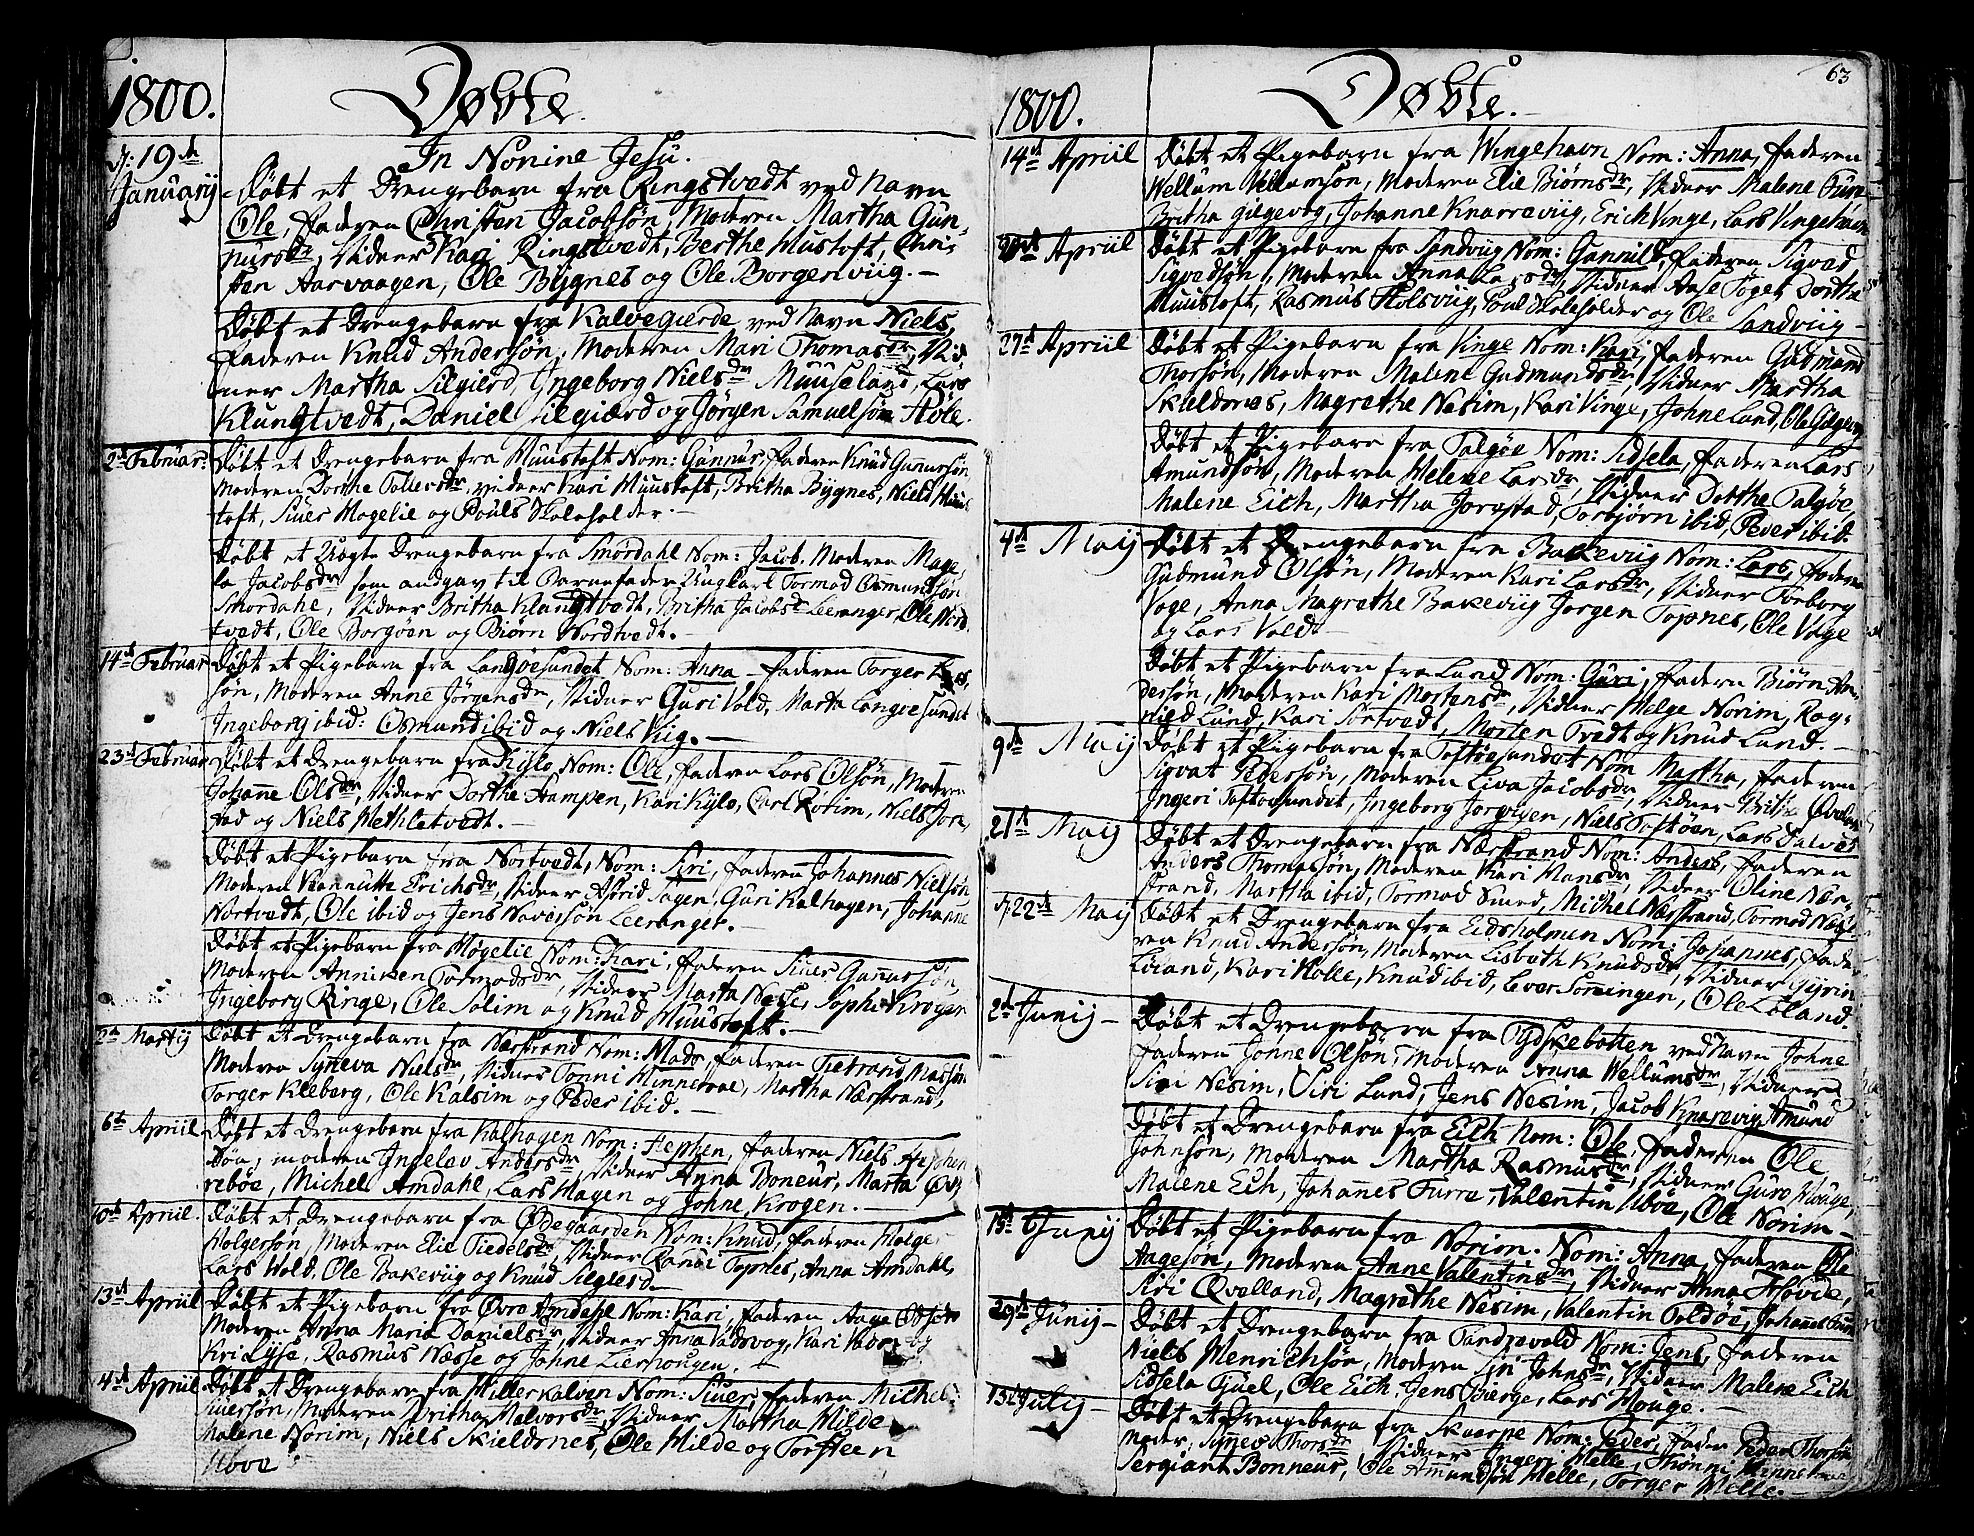 1800. Døbte.
d: 19de Januarij
In Nomine Jesu.
Døbt et Drengebarn fra Ringstvedt ved Navn
Ole, Faderen Christen Jacobsøn, Moderen Martha Gun-
nursdr, Vidner Kari Ringstvedt, Berthe Mustoft, Chri-
sten Aarvaagen, Ole Bygnes og Ole Borgenviig.—
Døbt et Drengebarn fra Kalvegierde ved Navn Niels,
Faderen Knud Andersøn, Moderen Mari Thomasdr, Vid-
ner Martha Silgierd, Yngeborg Nielsdr Muuseland, Lars
Klungtvedt, Daniel Silgiærd og Jørgen Samuelsøn Høle.
2de Februar: Døbt et Drengebarn fra Muustoft Nom: Gunnur, Faderen Knud Gunnursøn,
Moderen Dorthe Tollersdr, vidner Kari Muustoft, Britha Bygnes, Niels Muus-
toft, Siver Mogelie og Pouls Skoleholder.—
Døbt et Uægte Drengebarn fra Smørdahl Nom: Jacob. Moderen Mage-
la Jacobsdr som andgav til Barnefader Ungkarl Tormod Osmundsøn
Smørdahl, Vidner Britha Klungtvedt, Britha Jacobsdr Leeranger, Ole Nord-
tvedt, Ole Borgøen og Biørn Nordtvedt.—
14de Februar Døbt et Pigebarn fra Langøesundet Nom: Anna — Faderen Torger Lars-
søn, Moderen Anne Jørgensdr, Vidner Guri Vold, Marta Langøesundet
Ingeborg ibid: Osmund ibid og Niels Viig.—
23de Februar Døbt et Drengebarn fra Kylo Nom: Ole, Faderen Lars Olsøn, Moderen
Johanne Olsdr, Vidner Dorthe Hampen, Kari Kylo, Carl Røtim, Niels Jør-
stad og Niels Methletvedt.—
Døbt et Pigebarn fra Nortvedt, Nom: Siri, Faderen Johannes Nielsøn
Moderen Erichsdr, Vidner Astrid Hagen, Guri Kalhagen, Johanne
Nortvedt, Ole ibid og Jens Leeranger.—
Døbt et Pigebarn fra Møgelie Nom: Kari, Faderen Siver Gunnursøn,
Moderen Anniken Tormodsdr, Vidner Marta Næsse, Sophie Krogen
Ingeborg Ringe, Ole Solim og Knud Muustoft.—
2de Martij Døbt et Drengebarn fra Nærstrand Nom: Mads, Faderen Madsøn
Moderen Syneva Nielsdr, Vidner Tonni Hinneraae, Martha Nærstrand,
Torger Kleberg, Ole Kalsim og Peder ibid.—
6te Apriil Døbt et Drengebarn fra Kalhagen Nom: Stephen, Faderen Niels Stephen-
søn, moderen Ingelev Andersdr, Vidner Anna Boneur, Marta Øv-
rebøe, Michel Amdahl, Lars Hagen og Johne Krogen.—
10de Apriil. Døbt et Drengebarn fra Ødegaarden Nom: Knud, Faderen Holge
Holgersøn, Moderen Elie Siedelsdr, Vidner Rannei Topnes, Anna Amdahl,
Lars Wold, Ole Bakeviig og Knud Silgierd.
13de Apriil Døbt et Pigebarn fra Øvre Amdahl Nom: Kari, Faderen Aage Olsøn
Moderen Anna Maria Danielsdr, Vidner Anna Vadsvog, Kari
Lyse, Rasmus Næsse og Johne Lierhougen.—
14de Apriil Døbt et Drengebarn fra Hillerkalven Nom: Siver, Faderen Michel
Siversøn, Moderen Britha Halvorsdr, Vidner Martha Hilde
Malene Norim, Niels Skieldsnes, Ole Hilde og Torsteen
Uboe
63
1800. Døbte.
14de Apriil Døbt et Pigebarn fra Wingehavn Nom: Anna, Faderen
Wellum Wellumsøn, Moderen Elie Biørnsdr, Vidner Malene Furre
Britha Gilgevog, Johanne Knarreviig, Erich Vinge, Lars Vingehavn
20de Apriil Døbt et Pigebarn fra Sandviig Nom: Gunnild, Faderen Sigvad
Sigvadsøn, Moderen Anna Larsdr, Vidner Aase Toget, Dorthe
Muustoft, Rasmus Stolsviig, Poul Skoleholder og Ole Sandviig—
27de Apriil Døbt et Pigebarn fra Vinge Nom: Kari, Faderen Gudmund
Thorsøn, Moderen Malene Gudmundsdr, Vidner Martha
Skieldsnes, Magrethe Nesim, Kari Vinge, Johne Lund, Ole Gilgevog
Døbt et Pigebarn fra Talgøe Nom: Sidsela, Faderen Lars
Amundsøn, Moderen Helene Larsdr, Vidner Dorthe Talgøe,
Malene Eich, Martha Jørgstad, Torbjørn ibid, Peder ibid.
4de Maij Døbt et Drengebarn fra Bakeviig Nom: Lars, Faderen
Gudmund Olsøn, Moderen Kari Larsdr, Vidner Torborg
Voge, Anna Magrethe Bakeviig Jørgen Topnes, Ole Voge
og Lars Vold.—
Døbt et Pigebarn fra Lund Nom: Guri, Faderen Biørn An-
dersøn, Moderen Kari Mortensdr, Vidner Helge Norim, Rag-
nild Lund, Kari Sørtvedt, Morten Tvedt og Knud Lund.—
9de Maij Døbt et Pigebarn fra Toftøesundet Nom Martha, Faderen
Sigvat Pedersøn, Moderen Liva Jacobsdr, Vidner Britha
Ingeri Toftøesundet, Ingeborg, Niels Toftøen, Lars
21de Maij Døbt et Drengebarn fra Nærstrand Nom: Anders, Faderen
Anders Thomassøn, Moderen Kari Hansdr, Vidner Oline Nær-
strand, Martha ibid, Tormod Smed, Michel Nærstrand, Tormod
d: 22de Maij Døbt et Drengebarn fra Eidsholmen Nom: Johannes, Fade-
ren Knud Andersøn, Moderen Lisbeth Knudsdr, Vidner Gyrin
Løland, Kari Holle, Knud ibid, Lever, Ole Løland.
2de Junij— Døbt et Drengebarn fra Tydskebotten ved Navn Johne
Faderen Johne Olsøn, Moderen Anna Wellumsdr, Vidner
Siri Nesim, Siri Lund, Jens Nesim, Jacob Knarevig, Amund
Døbt et Drengebarn fra Eich Nom: Ole, Faderen Ole
Johnsøn, Moderen Martha Rasmusdr, Vidner Guro Houge,
Malene Eich, Johannes Furre, Valentin Uboe, Ole Norim—
15de Junij Døbt et Pigebarn fra Norim. Nom: Anna, Faderen Ole
Aagesøn, Moderen Anne Valentinsdr, Vidner Anna Hovde,
Siri Qvelland, Magrethe Nesim, Valentin Foldøe, Johannes Furre
29de Junij— Døbt et Drengebarn fra Sandsvold Nom: Jens, Faderen
Niels Henrichsøn, Moderen Siri Johnsdr, Vidner Malene Eich
Sidsela Tjuel, Ole Eich, Jens Bierge, Lars Houge.—
13de Julij— Døbt et Drengebarn fra Skarpe Nom: Peder, Fader Peder Thorsøn
Moder, Synnev Thorsdr, Vidner Ingeri Helle, Thonni
Sergiant Bonneur, Ole Amundsøn Helle, Torger Helle.—